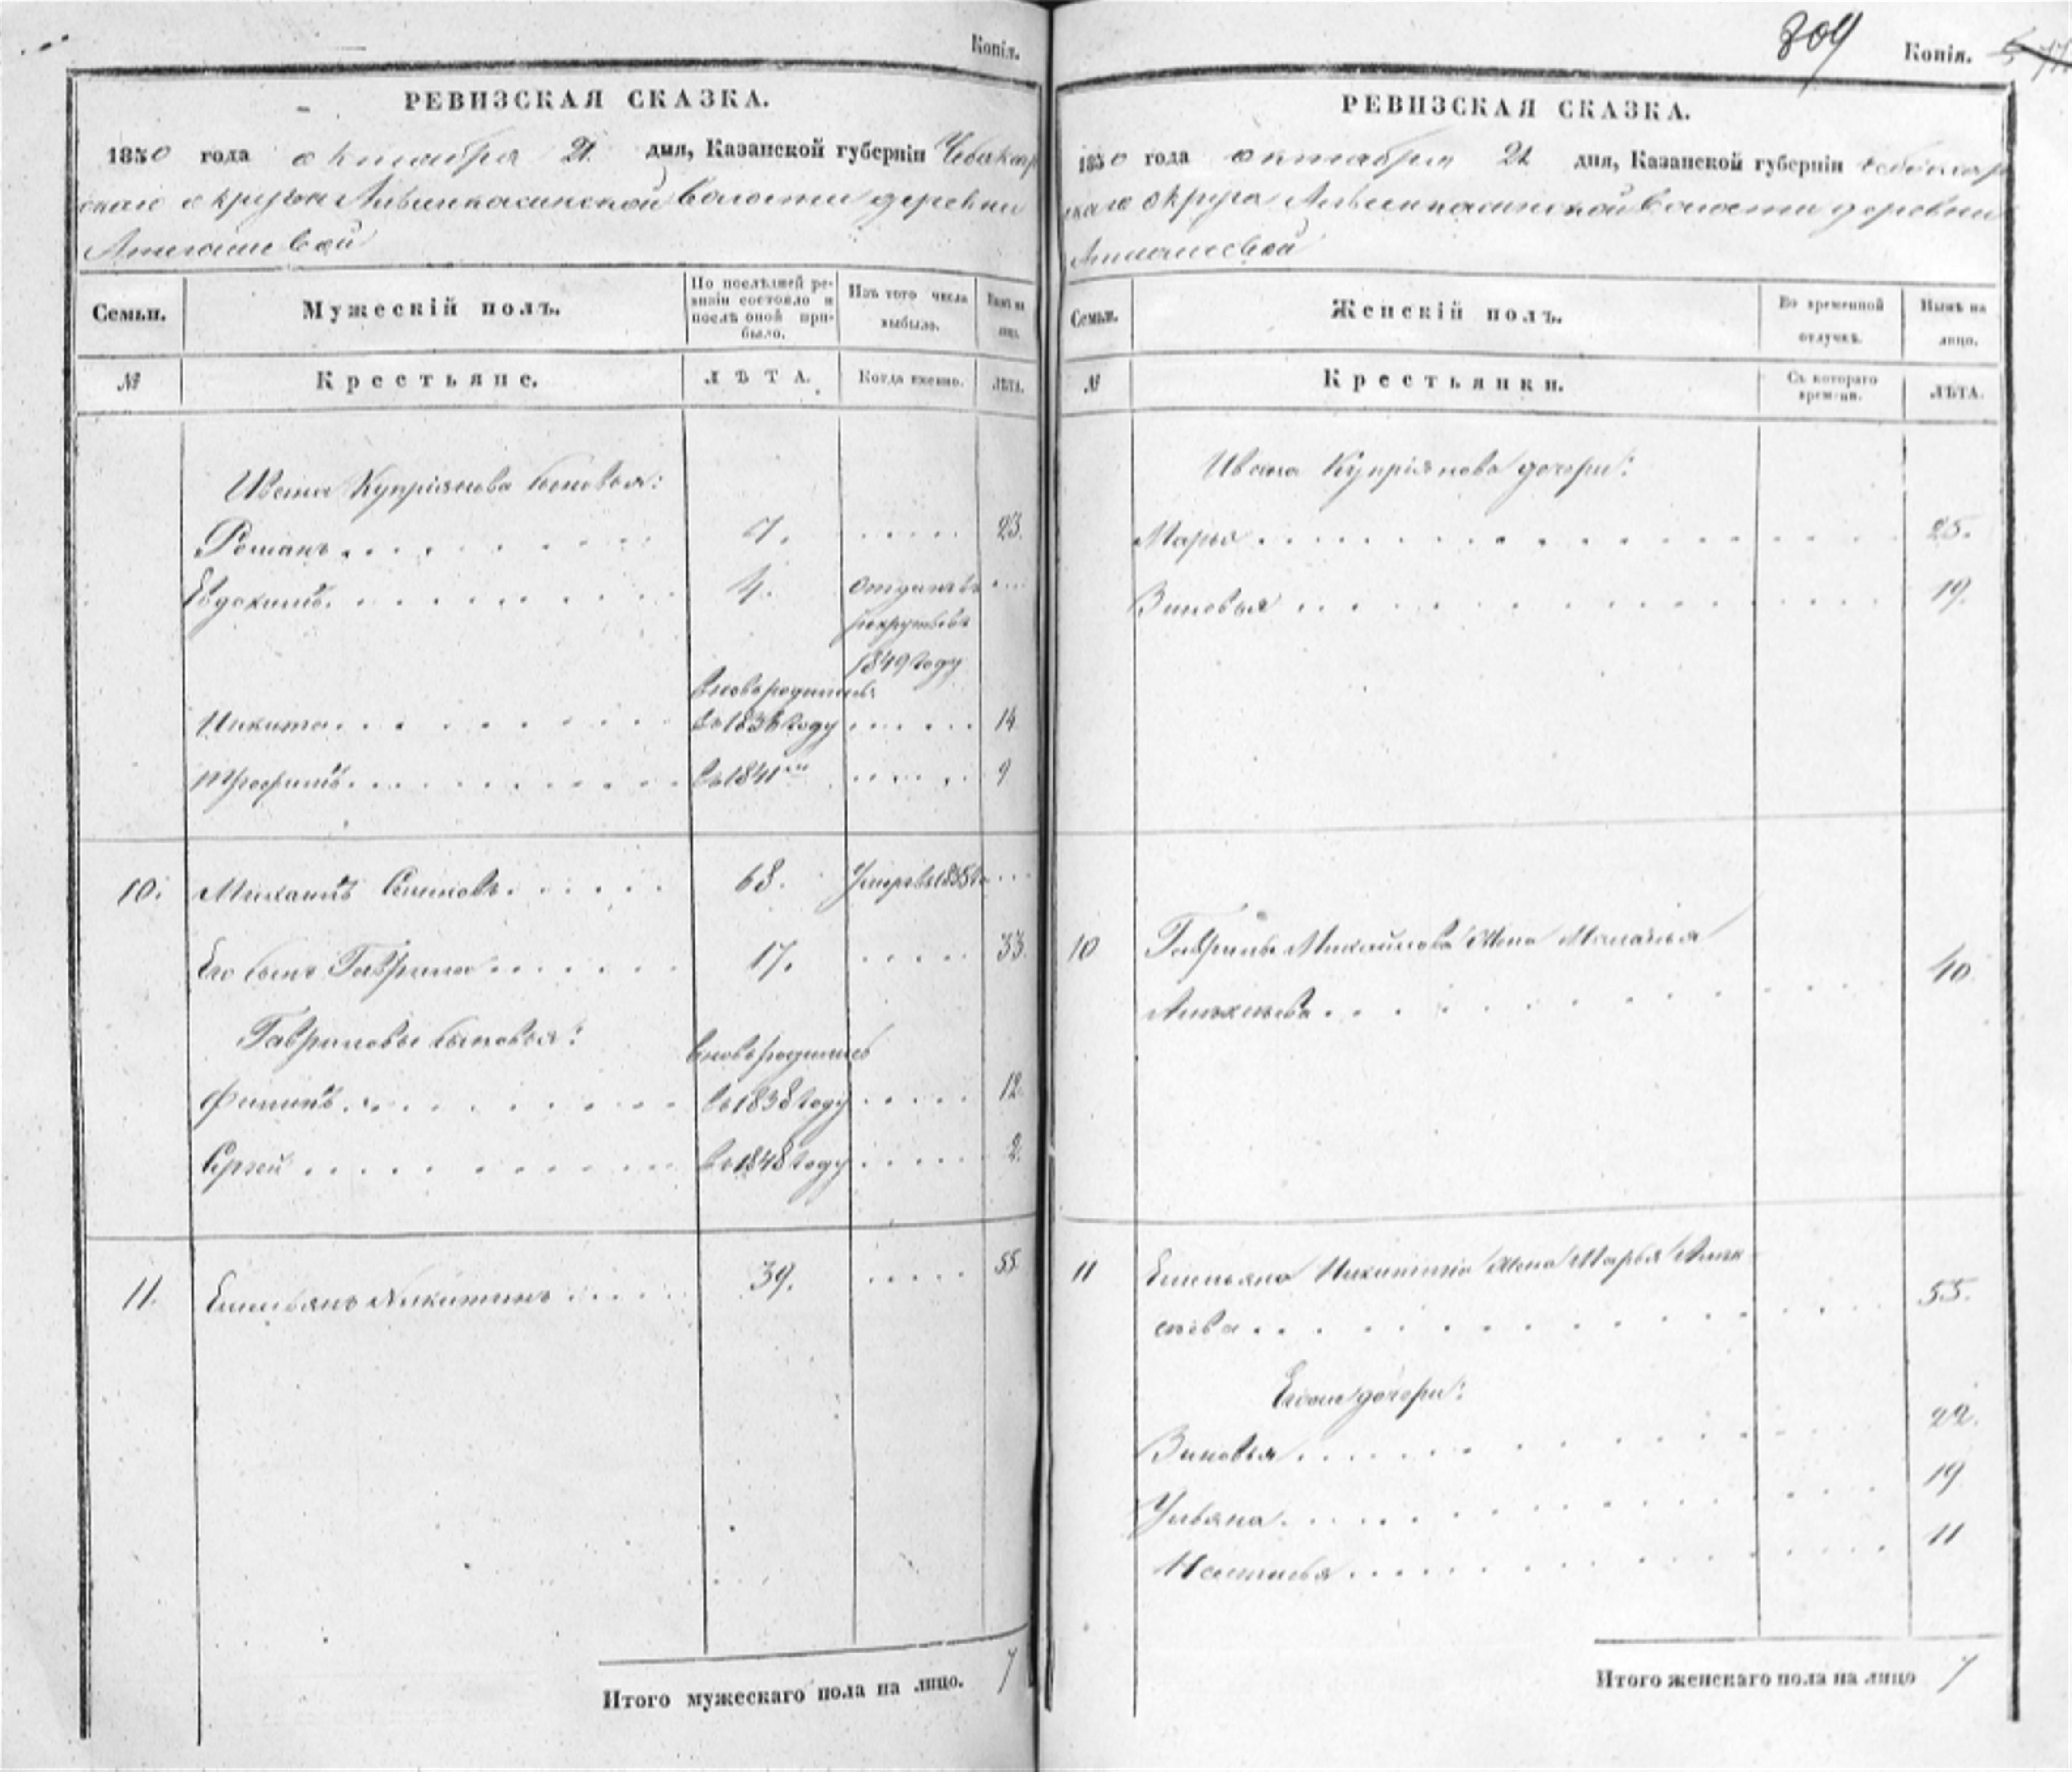 Копія.
РЕВИЗСКАЯ СКАЗКА.
1850 года октября 21 дня, Казанской губерніи Чебоксар
скаго округа волости деревни
Мужескій полъ.
Семьи.
По послѣдней ре-
визіи состояло и
послѣ оной при-
было.
Изъ того числа
выбыло.
Нынѣ на
лицо.
№
Крестьяне.
ЛѢТА.
Когда именно.
ЛѢТА.
Ивана Купріянова сыновья:
Романъ 7. 23.
Евдокимъ 4. отданъ въ
рекруты въ
1849 году
вновь родились
Никита въ 1836 году 14
Трофимъ въ 1841мъ 9
10. Михаилъ Семеновъ 68. Умеръ въ 1838 го
Его сынъ Гаврила 17. 33.
Гавриловы сыновья:
вновь родились
Филипъ въ 1838 году 12.
Сергей въ 1848 году 2.
11. Емельянъ Никитинъ 39. 55
Итого мужескаго пола на лицо. 7
809
Копія.
РЕВИЗСКАЯ СКАЗКА.
1850 года октября 21 дня, Казанской губерніи Чебоксар
скаго округа волости деревни
Семьи.
Женскій полъ.
Во временной
отлучкѣ.
Нынѣ на
лицо.
№
Крестьянки.
Съ котораго
времени.
ЛѢТА.
Ивана Купріянова дочери:
Марья 25.
Зиновья 19.
10 Гаврилы Михайлова жена Маланья
Алексѣева 40
11 Емельяна Никитина жена Марья Алек
сѣева 55.
Его дочери:
Зиновья 22.
Ульяна 19
Настасья 11
Итого женскаго пола на лицо 7